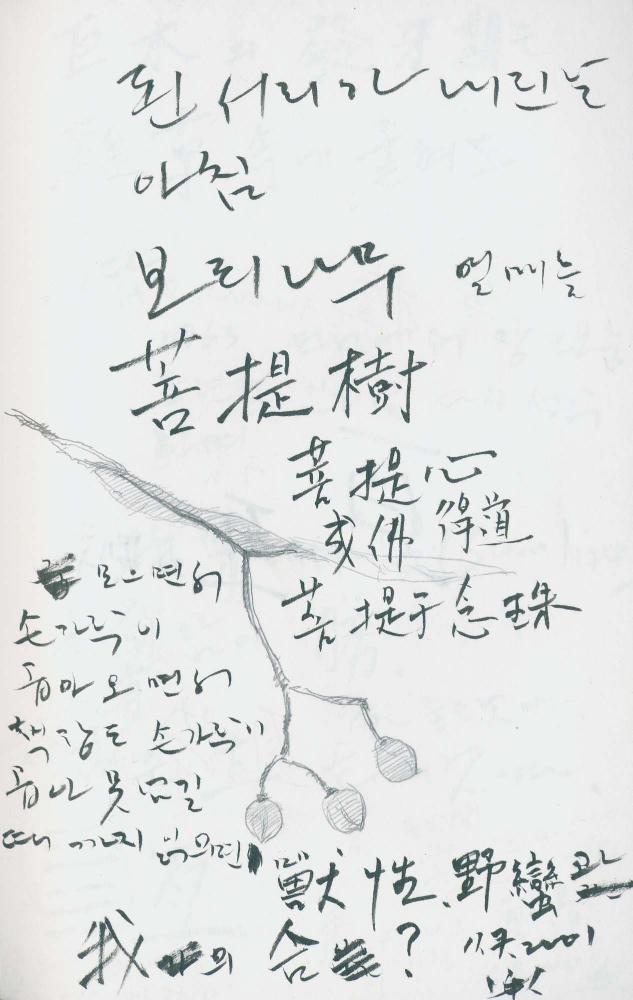 된서리가 내린 날
아침
보리나무 열매는
菩提樹
菩提心
成佛 得道
菩提子念珠
모으면서
손가락이
곱아오면서
책장도 손가락이
곱아 못 넘길
때까지 읽으면
獸性, 野蠻과
我의 合 ?